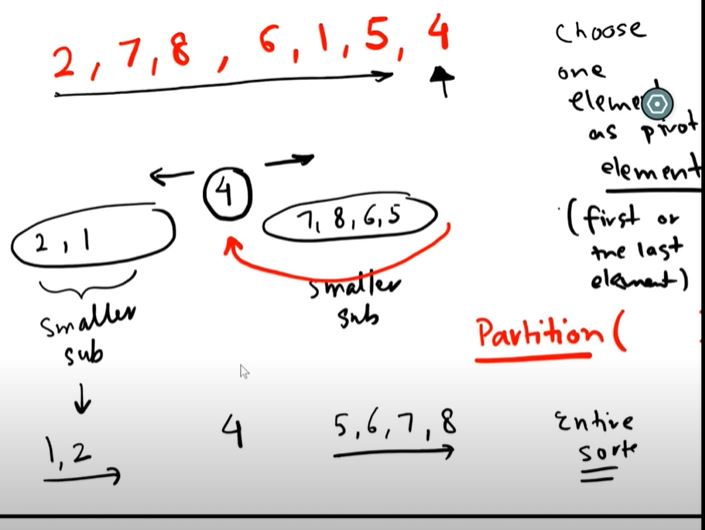 2, 7, 8, 6, 1, 5, 4
choose
one
as pivot
element
(first or
the last
element)
4
2, 1
7, 8, 6, 5
smaller
sub
smaller
sub
Partition(
1, 2
4
5, 6, 7, 8
Entire
sorte